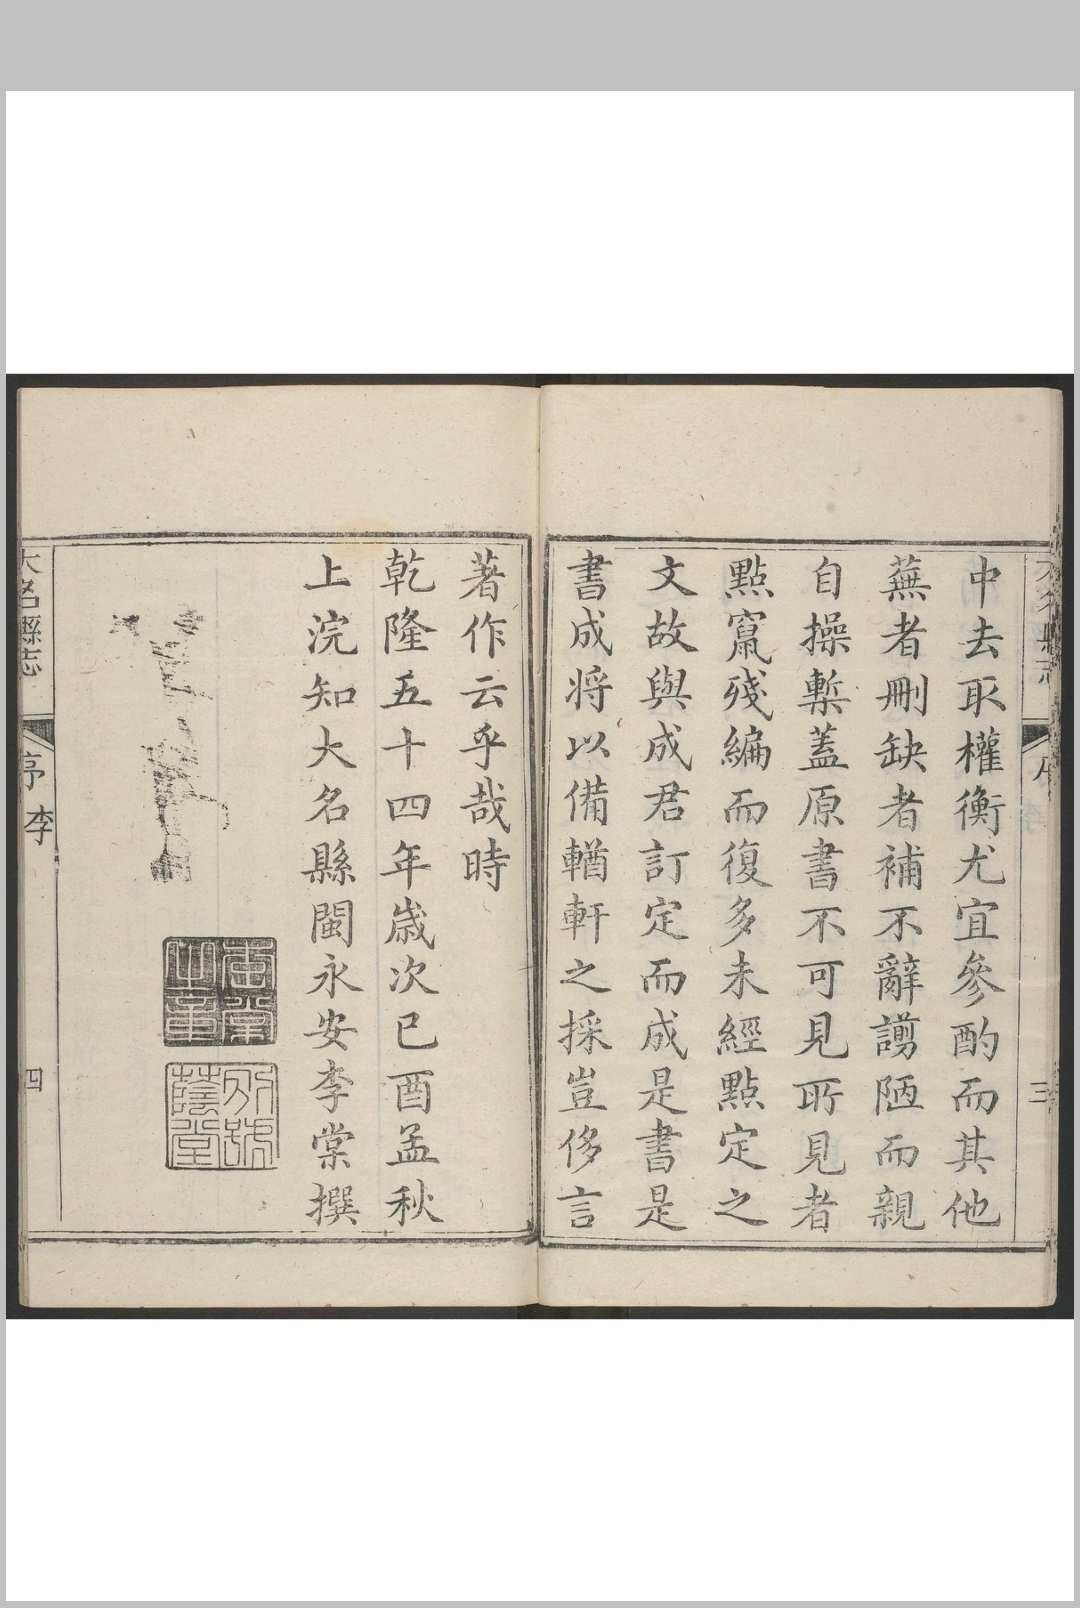 中去取權衡尤宜參酌而其他
蕪者刪缺者補不辭譾陋而親
自操槧蓋原書不可見所見者
點竄殘編而復多未經點定之
文故與成君訂定而成是書是
書成將以備輶軒之採豈侈言
著作云乎哉時
乾隆五十四年歲次己酉孟秋
上浣知大名縣閩永安李棠撰
李棠之章
別號蔭堂
大名縣志
序 李
四
三